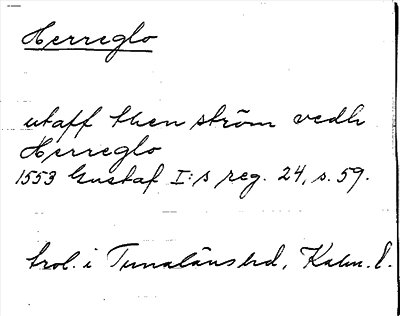 Herreglo
utaff then ström vedh
Herreglo
1553 Gustaf I:s reg. 24, s. 59.
trol. i Tunaläns hd, Kalm. l.